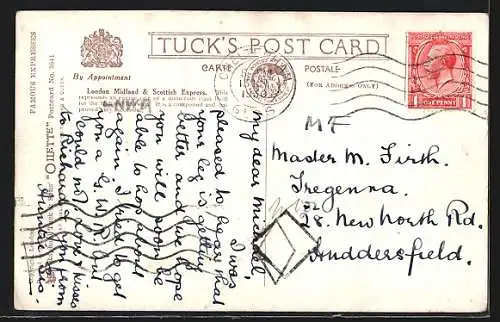 TUCK'S POST CARD
CARTE POSTALE
By Appointment
(For Address Only)
London Midland & Scottish Express.
FAMOUS EXPRESSES
"OILETTE" Postcard No. 3541
ONE PENNY
LNWR
MF
My dear Michael,
I was
pleased to hear that
your leg is getting
better and we hope
you will soon be
able to hop about
again. I tried to get
you a G.W.R. but
could not. Love, kisses
to Richard & you from
Auntie
Master M. Firth.
Tregenna.
28. New North Rd.
Huddersfield.